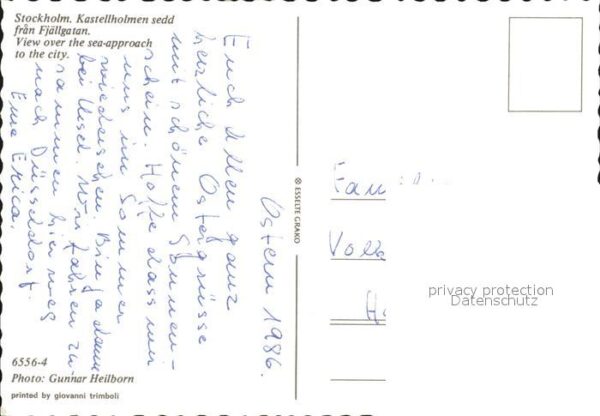 Stockholm. Kastellholmen sedd
från Fjällgatan.
View over the sea-approach
to the city.
Ostern 1986.
Euch Allen ganz
herzliche Ostergrüsse
mit schönem Sonnen-
schein. Hoffe dass wir
uns im Sommer
wiedersehen. Bin ja dann
bei Ursel. Wir fahren zu-
sammen hier
nach Düsseldorf.
Eure Erica.
© ESSELTE GRAKO
Fam
Volk
privacy protection
Datenschutz
6556-4
Photo: Gunnar Heilborn
printed by giovanni trimboli